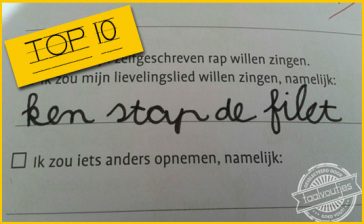 TOP 10
zelfgeschreven rap willen zingen.
zou mijn lievelingslied willen zingen, namelijk:
ken stap de filet
Ik zou iets anders opnemen, namelijk:
taalvoutjes